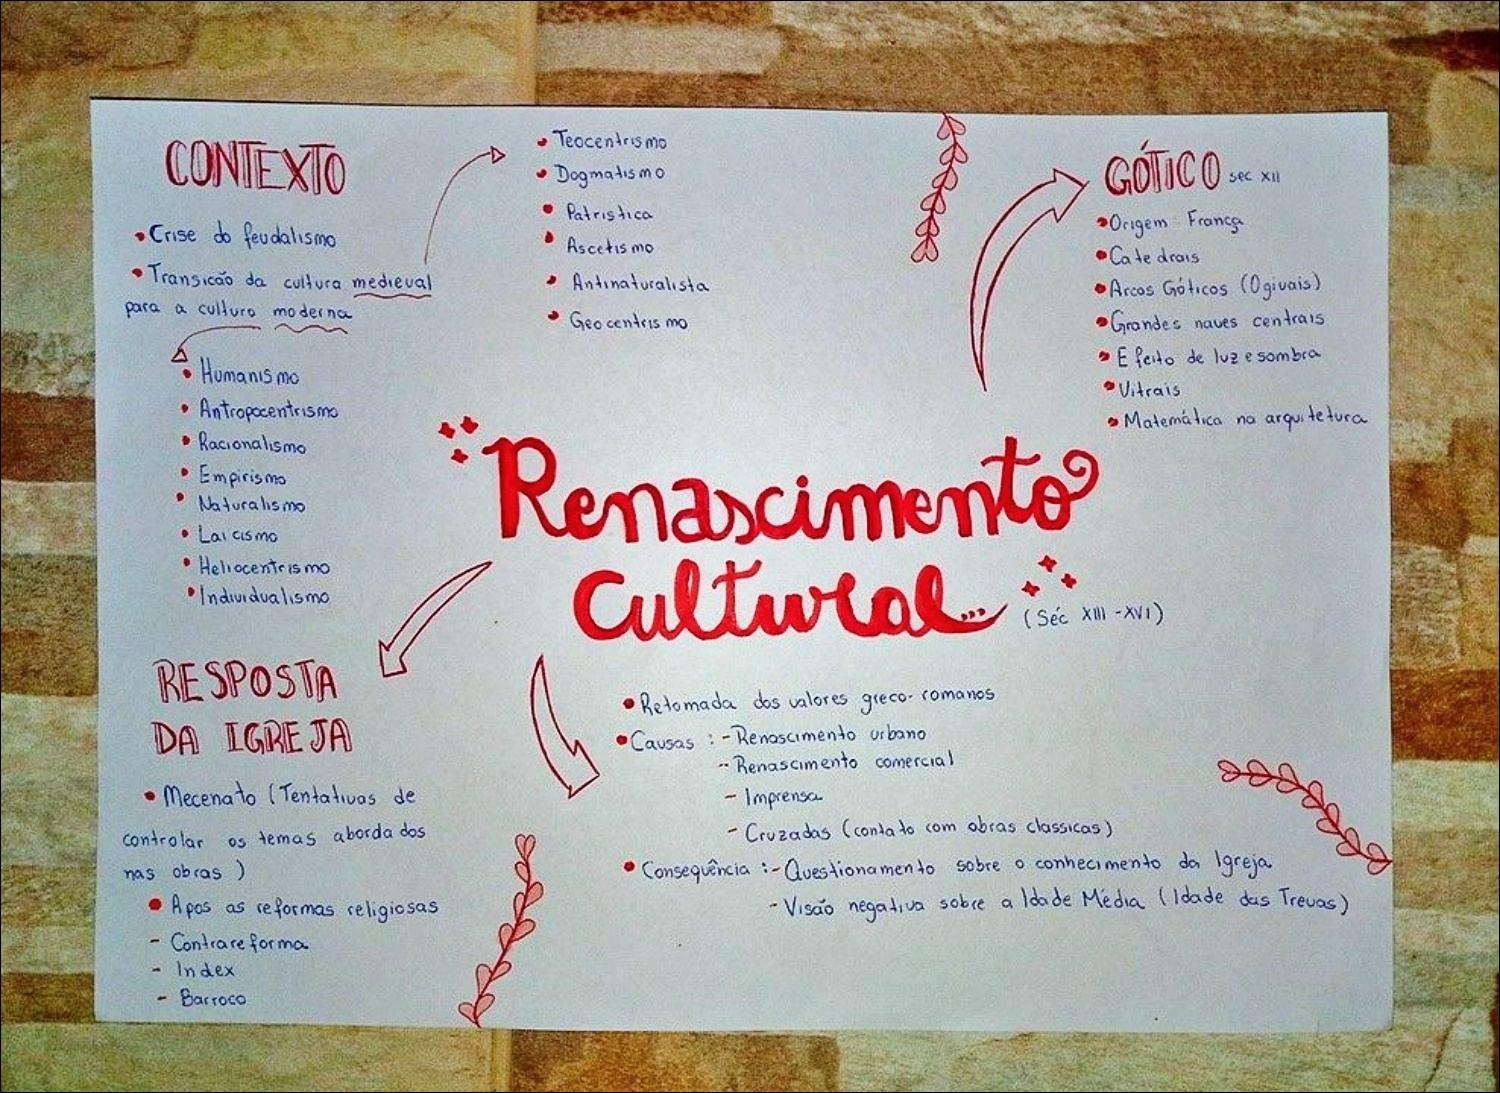 CONTEXTO
• Crise do feudalismo
• Transicão da cultura medieval
para a cultura moderna
• Humanismo
• Antropocentrismo
• Racionalismo
• Empirismo
• Naturalismo
• Laicismo
• Heliocentrismo
• Individualismo
• Teocentrismo
• Dogmatismo
• Patristica
• Ascetismo
• Antinaturalista
• Geocentrismo
GÓTICO sec XII
• Origem: França
• Catedrais
• Arcos Góticos (Ogivais)
• Grandes naves centrais
• Efeito de luz e sombra
• Vitrais
• Matemática na arquitetura
Renascimento
Cultural...
(Séc XIII - XVI)
RESPOSTA
DA IGREJA
• Mecenato (Tentativas de
controlar os temas abordados
nas obras)
• Apos as reformas religiosas
- Contrareforma
- Index
- Barroco
• Retomada dos valores greco-romanos
• Causas : - Renascimento urbano
- Renascimento comercial
- Imprensa
- Cruzadas (contato com obras classicas)
• Consequência : - Questionamento sobre o conhecimento da Igreja
- Visão negativa sobre a Idade Média (Idade das Trevas)